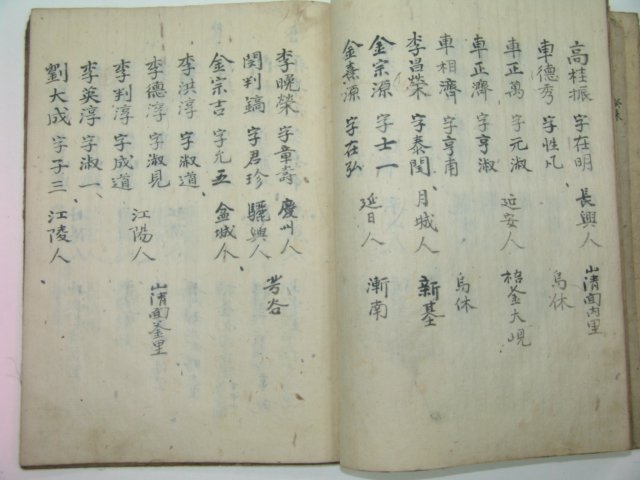 高桂振 字在明 長興人 山清面內里
車德秀 字性凡 烏休
車正萬 字元淑 延安人 梧釜大峴
車正濟 字亨淑
車相濟 字亨甫 烏休
李昌榮 字泰閏 月城人 新基
金宗源 字士一 漸南
金熹源 字在弘 延日人
李晚榮 字章壽 慶州人
閔判鎬 字君珍 驪興人 芳谷
金宗吉 字允五 金城人
李洪淳 字淑道
李德淳 字淑見 山清面釜里
李判淳 字成道 江陽人
李英淳 字淑一
劉大成 字子三 江陵人